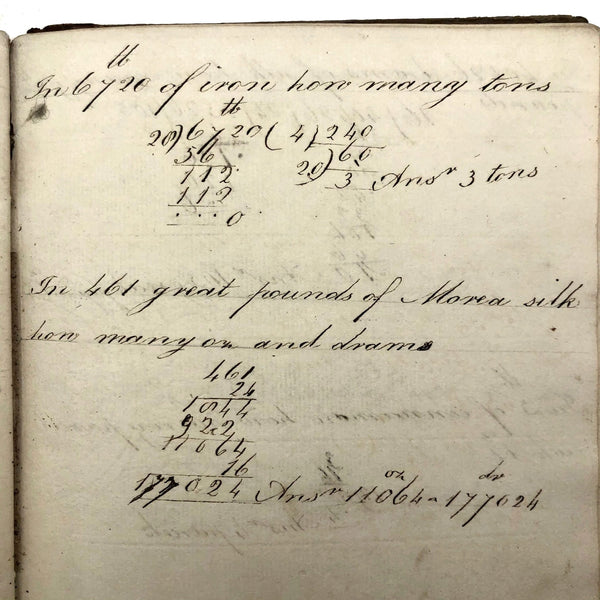 lb
In 6720 of iron how many tons
lb
28)6720(4)240
56 20)60
112 3 Ansr 3 tons
112
...0
In 461 great pounds of Morea silk
how many oz and drams
461
24
1844
922
11064
16
177024 Ansr 11064 oz 177024 dr